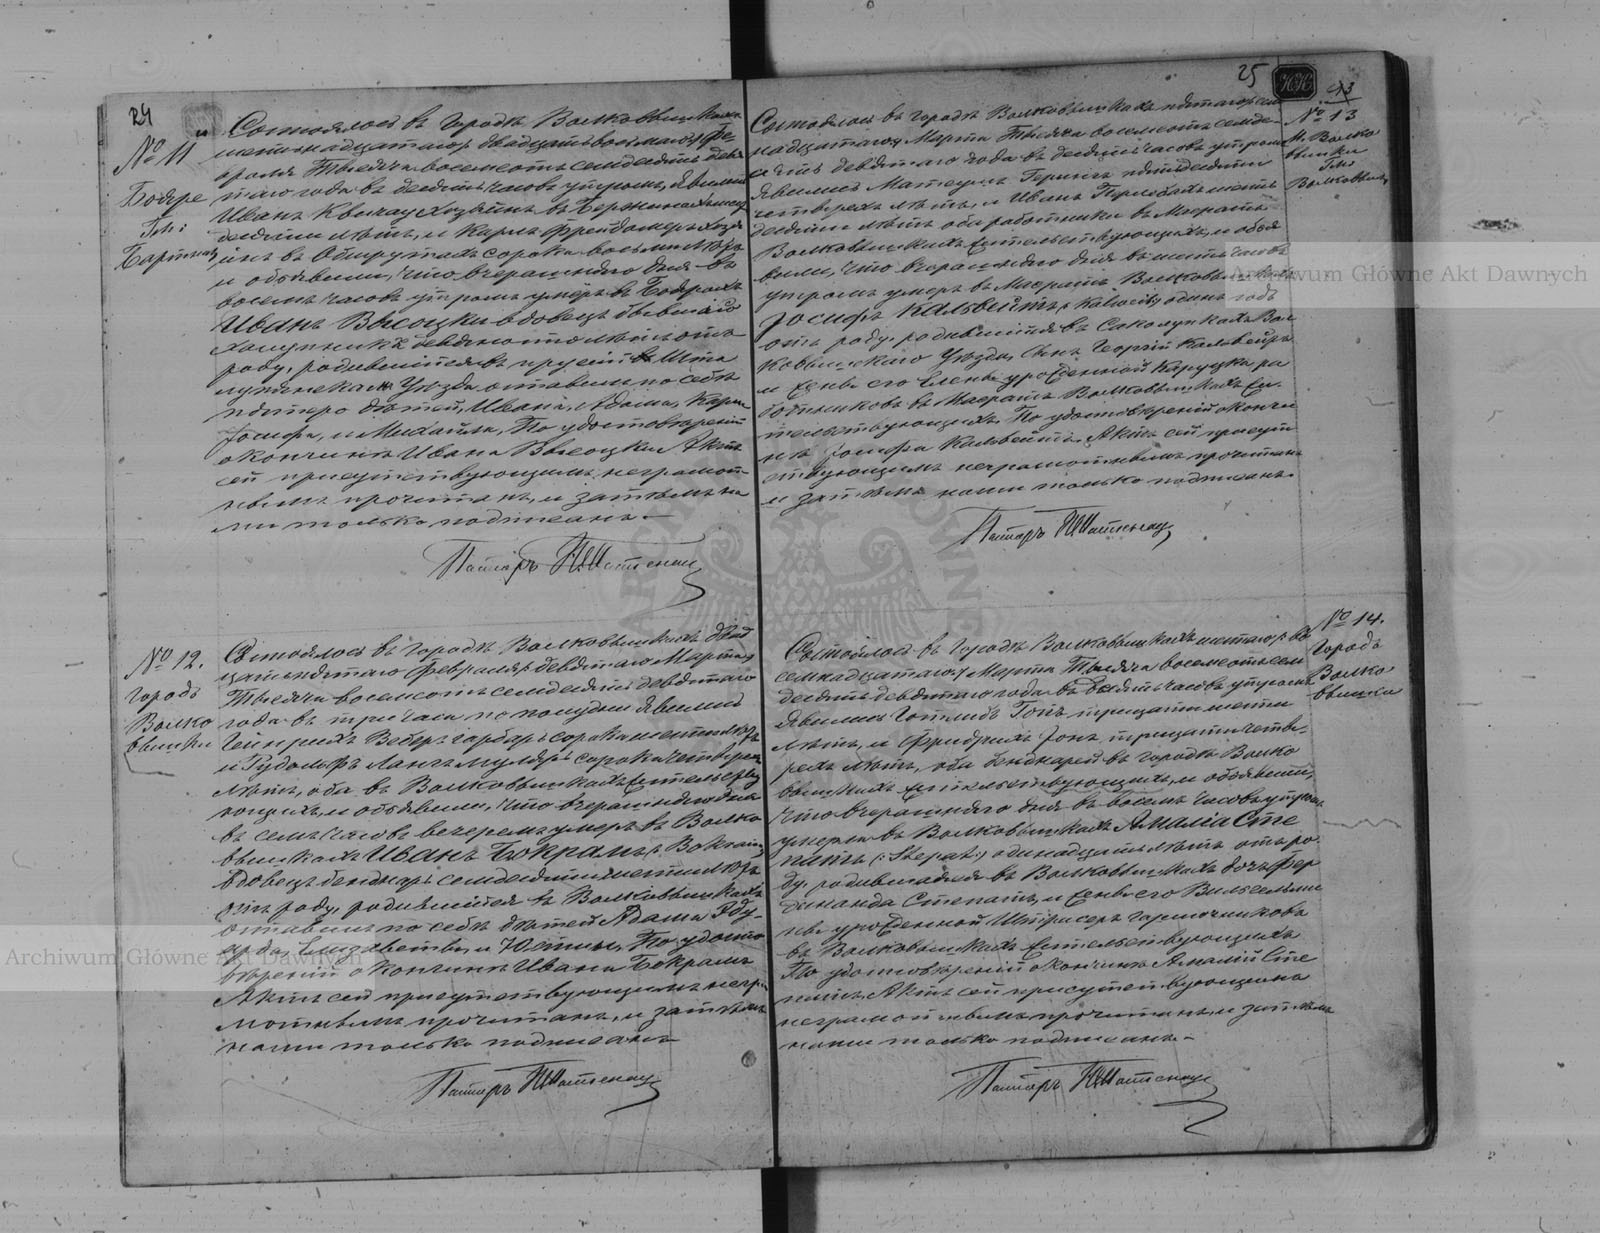 24
№ 11
Бояре
Гм:
Бартники
Состоялось въ городѣ Волковышкахъ
шестнадцатаго двадцать восьмаго Фе
враля Тысяча восемсотъ семдесятъ девя
таго года въ десять часовъ утромъ, явились
Иванъ Хозяинъ въ
десяти лѣтъ, и Карлъ Фрейдомеръ хозя
инъ въ Обшрутахъ сорока восьми лѣтъ
и объявили, что вчерашняго дня въ
восемъ часовъ утромъ умеръ въ Боярахъ
Иванъ Высоцки вдовецъ бывшаго
халупника девяносто лѣтъ отъ
роду, родившейся въ Пруссіи въ
Уѣзда оставилъ по себѣ
пятеро дѣтей, Ивана, Адама, Карла
Іосифа, и Михайла, По удостовѣреніи
о кончинѣ Ивана Высоцки Актъ
сей присутствующимъ неграмот
нымъ прочитанъ, и затѣмъ на
ми только подписанъ.—
Пасторъ
№ 12.
городъ
Волко
вышки
Состоялось въ городѣ Волковышкахъ двад
цать пятаго Февраля, девятаго Марта
Тысяча восемсотъ семдесятъ девятаго
года въ три часа по полудни явились
Гейнрихъ Веберъ гарбаръ сорока шести лѣтъ
и Рудольфъ Лангъ муляръ сорока четырехъ
лѣтъ, оба въ Волковышкахъ жительству
ющихъ, и объявили, что вчерашняго дня
въ семъ часовъ вечеромъ умеръ въ Волко
вышкахъ Иванъ Бокрамъ
вдовецъ бенднаръ семдесяти шести лѣтъ
отъ роду, родившейся въ Волковышкахъ
оставилъ по себѣ дѣтей Адама Эду-
арда, Елизаветы, и Юстины, По удосто
вѣреніи о кончинѣ Ивана Бокрамъ
Актъ сей присутствующимъ негра
мотнымъ прочитанъ, и затѣмъ
нами только подписанъ.—
Пасторъ
25
13
№ 13
М. Волко
вышки
Гм:
Волковышки
Состоялось въ городѣ Волковышкахъ пятаго, сем
надцатаго Марта Тысяча восемсотъ семде-
сятъ девятаго года въ десять часовъ утромъ
явились Матеушъ пятидесяти
четырехъ лѣтъ, и Иванъ шесть
десяти лѣтъ оба работники въ Маератѣ
Волковышкахъ жительствующихъ, и объя
вили, что вчерашняго дня въ шесть часовъ
утромъ умеръ въ Маератѣ Волковышкахъ
Іосифъ Кальвейтъ, Kalweit, одинъ годъ
отъ роду, родившейся въ Соколупкахъ Вол
ковышскаго Уѣзда, сынъ Георгій Кальвейтъ
и жены его Елены урожденной Каруцка, ра
ботниковъ въ Маератѣ Волковышкахъ жи-
тельствующихъ. По удостовѣреніи о кончи
нѣ Іосифа Кальвейтъ Актъ сей присут
ствующимъ неграмотнымъ прочитанъ
и затѣмъ нами только подписанъ.
Пасторъ
№ 14.
Городъ
Волко
вышки
Состоялось въ городѣ Волковышкахъ шестаго, во
семнадцатаго Марта Тысяча восемсотъ сем
десятъ девятаго года въ десять часовъ утромъ
явились Готлибъ Гопъ тридцати шести
лѣтъ, и Фридрихъ тридцати четы-
рехъ лѣтъ, оба бенднарей въ городѣ Волко
вышкахъ жительствующихъ, и объявили,
что вчерашняго дня въ восемъ часовъ утромъ
умерла въ Волковышкахъ Амалія Сте
патъ (: Stepat :) одинадцать лѣтъ отъ ро-
ду, родившаяся въ Волковышкахъ дочь Фер
динанда Степатъ, и жены его Вильгельми
ны урожденной Штрасеръ горшечниковъ
въ Волковышкахъ жительствующихъ
По удостовѣреніи о кончинѣ Амаліи Сте
патъ, Актъ сей присутствующимъ
неграмотнымъ прочитанъ, и затѣмъ
нами только подписанъ.—
Пасторъ
Archiwum Główne Akt Dawnych
Archiwum Główne Akt Dawnych